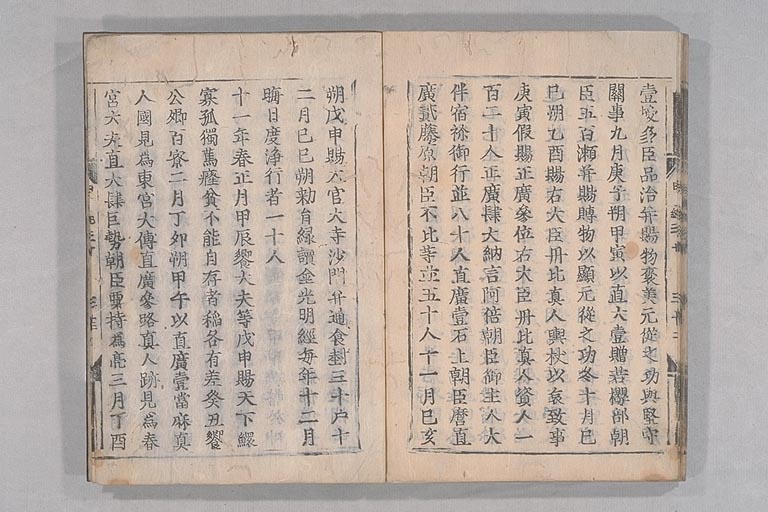 壹授多臣品治并賜物褒美元從之功與堅守
關事九月庚子朔甲寅以直大壹贈若櫻部朝
臣五百瀬并賜賻物以顯元從之功冬十月己
巳朔乙酉賜右大臣丹比真人輿杖以哀致事
庚寅假賜正廣參位右大臣丹比真人資人一
百二十人正廣肆大納言阿倍朝臣御主人大
伴宿祢御行並八十人直廣壹石上朝臣麿直
廣貳藤原朝臣不比等並五十人十一月己亥
朔戊申賜大官大寺沙門弁通食封三十戸十
二月己巳朔勅有緑讀金光明經毎年十二月
晦日度淨行者一十人
十一年春正月甲辰饗大夫等戊申賜天下鰥
寡孤獨篤癃貧不能自存者稲各有差癸丑饗
公卿百寮二月丁卯朔甲午以直廣壹當麻真
人國見為東宮大傅直廣參路真人跡見為春
宮大夫直大肆巨勢朝臣粟持為亮三月丁酉